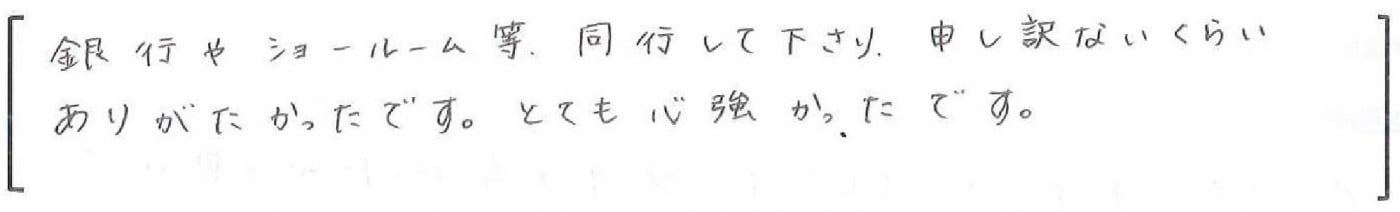 銀行やショールーム等、同行して下さり、申し訳ないくらい
ありがたかったです。とても心強かったです。